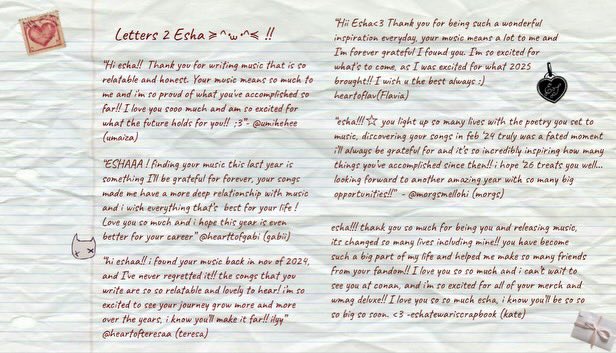 Letters 2 Esha ≽^•⩊•^≼ !!
"Hi esha!! Thank you for writing music that is so
relatable and honest. Your music means so much to
me and i'm so proud of what you've accomplished so
far!! I love you sooo much and am so excited for
what the future holds for you!! ;3"- @umihehee
(umaiza)
"ESHAAA ! finding your music this last year is
something I'll be grateful for forever, your songs
made me have a more deep relationship with music
and i wish everything that's best for your life !
Love you so much and i hope this year is even
better for your career" @hearttofgabi (gabii)
"hi eshaa!! i found your music back in nov of 2024,
and I've never regretted it!! the songs that you
write are so so relatable and lovely to hear! i'm so
excited to see your journey grow more and more
over the years, i know you'll make it far!! ilyy"
@heartofteresaa (teresa)
"Hii Esha<3 Thank you for being such a wonderful
inspiration everyday, your music means a lot to me and
I'm forever grateful I found you. I'm so excited for
what's to come, as I was excited for what 2025
brought!! I wish u the best always :)
heartoflav(Flavia)
"esha!!! ☆ you light up so many lives with the poetry you set to
music, discovering your songs in feb '24 truly was a fated moment
i'll always be grateful for and it's so incredibly inspiring how many
things you've accomplished since then!! i hope '26 treats you well...
looking forward to another amazing year with so many big
opportunities!!" - @morgsmellohi (morgs)
esha!!! thank you so much for being you and releasing music,
its changed so many lives including mine!! you have become
such a big part of my life and helped me make so many friends
from your fandom!! I love you so so much and i can't wait to
see you at conan, and i'm so excited for all of your merch and
wmag deluxe!! I love you so so much esha, i know you'll be so so
so big so soon. <3 -eshatewariscrapbook (kate)